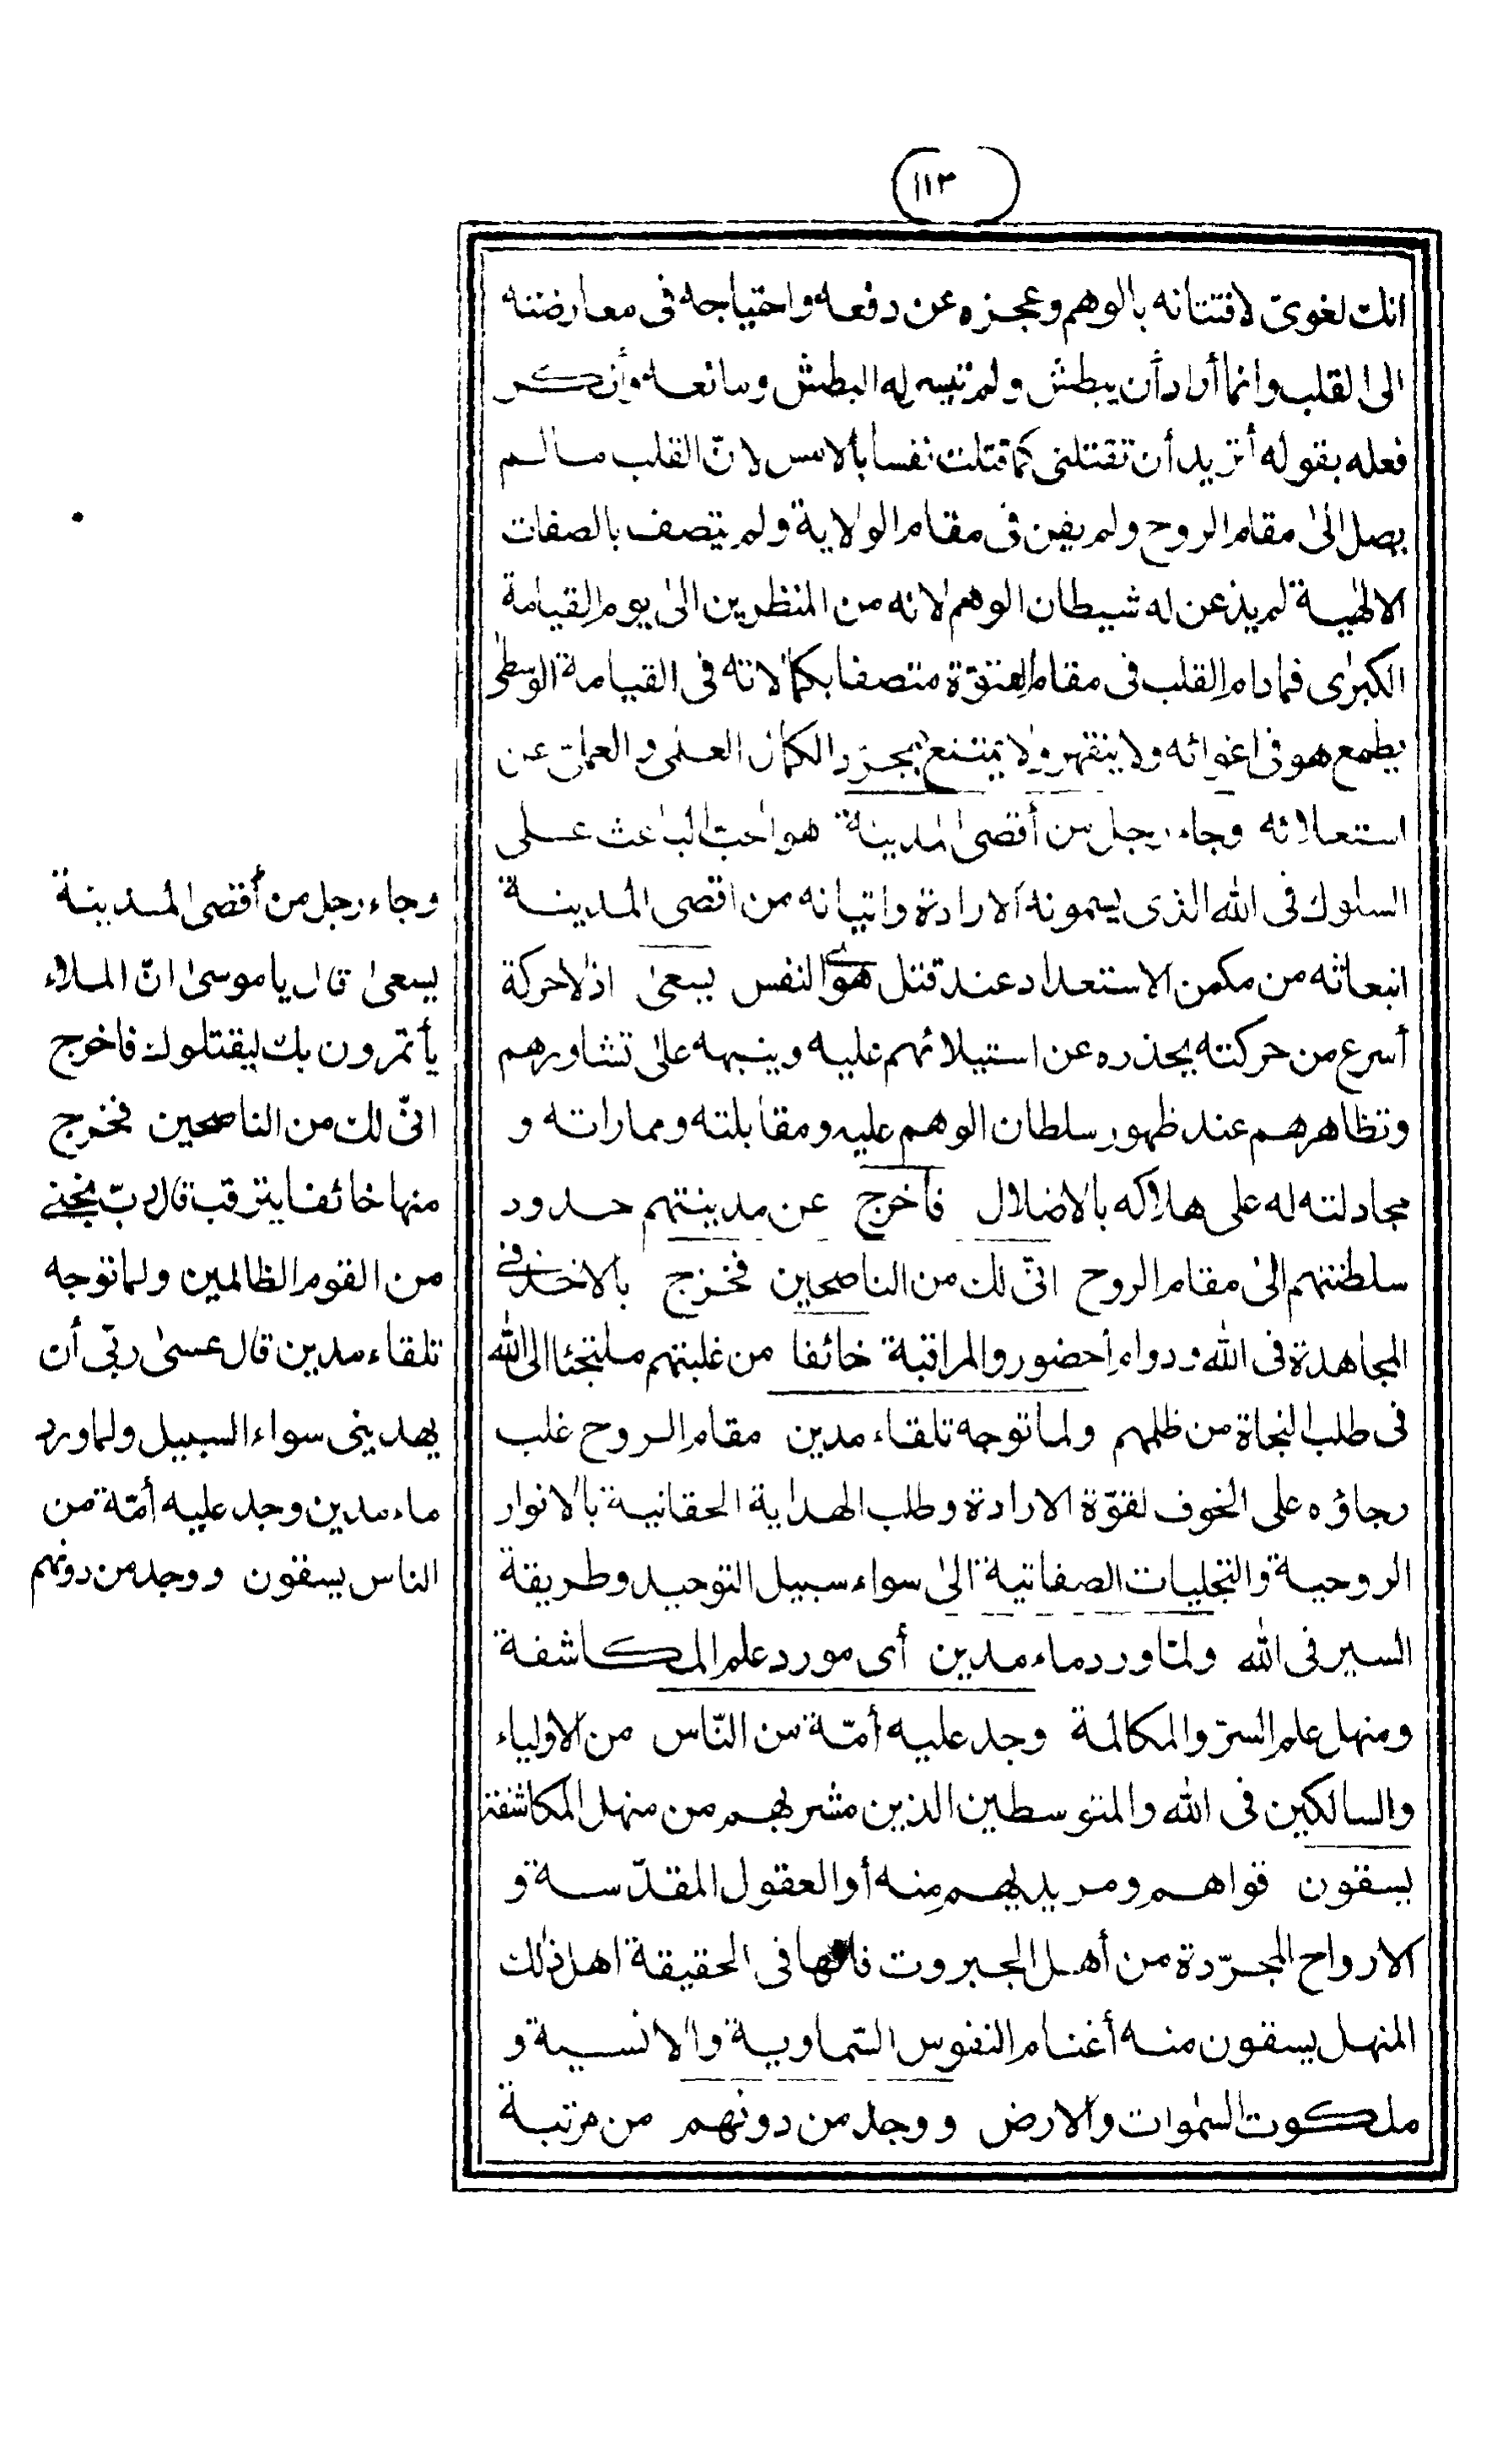 (١١٣)
انك لغوىّ لافتتانه بالوهم وعجزه عن دفعه واحتياجه فى معارضته
الى القلب وانما أراد أن يبطش ولم يتيسر له البطش ومانعه وأنكر
فعله بقوله أتريد أن تقتلنى كما قتلت نفسا بالامس لانّ القلب مالم
يصل الىٰ مقام الروح ولم يفن فى مقام الولاية ولم يتصف بالصفات
الالٰهية لم يذعن له شيطان الوهم لانه من المنظرين الىٰ يوم القيامة
الكبرٰى فمادام القلب فى مقام الفتوّة متصفا بكمالاته فى القيامة الوسطىٰ
يطمع هو فى اغوائه ولا ينقهر ولا يمتنع بمجرّد الكمال العلمى والعملى عن
استعلائه وجاء رجل من أقصى المدينة هو الحبّ الباعث على
السلوك فى الله الذى يسمونه الارادة واتيانه من اقصى المدينة
انبعاثه من مكمن الاستعداد عند قتل هوى النفس يسعىٰ اذ لا حركة
أسرع من حركته يحذره عن استيلائهم عليه وينبهه علىٰ تشاورهم
وتظاهرهم عند ظهور سلطان الوهم عليه ومقابلته ومماراته و
مجادلته له على هلاكه بالاضلال فاخرج عن مدينتهم حدود
سلطنتهم الىٰ مقام الروح انّى لك من الناصحين فخرج بالاخذ فى
المجاهدة فى الله ودوام الحضور والمراقبة خائفا من غلبتهم ملتجئا الى الله
فى طلب النجاة من ظلمهم ولما توجه تلقاء مدين مقام الروح غلب
رجاؤه على الخوف لقوّة الارادة وطلب الهداية الحقانية بالانوار
الروحية والتجليات الصفاتية الىٰ سواء سبيل التوحيد وطريقة
السير فى الله ولمّا ورد ماء مدين أى مورد علم المكاشفة
ومنهل علم السرّ والمكالمة وجد عليه أمّة من النّاس من الاولياء
والسالكين فى الله والمتوسطين الذين مشربهم من منهل المكاشفة
يسقون قواهم ومريديهم منه أو العقول المقدّسة و
الارواح المجرّدة من أهل الجبروت فانها فى الحقيقة اهل ذٰلك
المنهل يسقون منه أغنام النفوس السّماوية والانسية و
ملكوت السمٰوات والارض ووجد من دونهم من مرتبة
وجاء رجل من أقصى المدينة
يسعىٰ قال يا موسىٰ انّ الملاء
يأتمرون بك ليقتلوك فاخرج
انّى لك من الناصحين فخرج
منها خائفا يترقب قال ربّ نجنى
من القوم الظالمين ولما توجه
تلقاء مدين قال عسىٰ ربّى أن
يهدينى سواء السبيل ولما ورد
ماء مدين وجد عليه أمّة من
الناس يسقون ووجد من دونهم